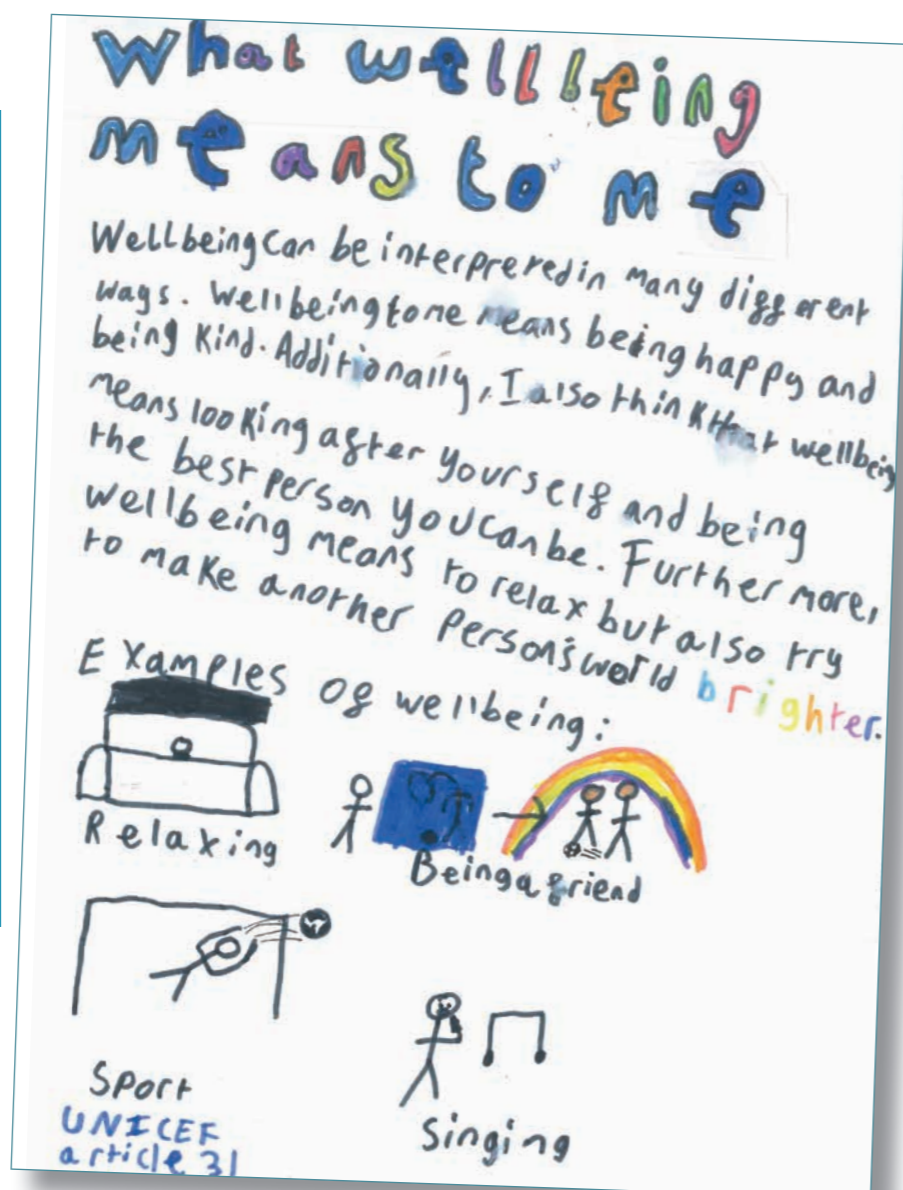 What wellbeing
means to me
Wellbeing can be interprered in many different
ways. Wellbeing to me means being happy and
being kind. Additionally, I also think that wellbeing
means looking after yourself and being
the best person you can be. Furthermore,
wellbeing means to relax but also try
to make another person's world brighter.
Examples of wellbeing:
Relaxing
Being a friend
Sport
Singing
UNICEF
article 31